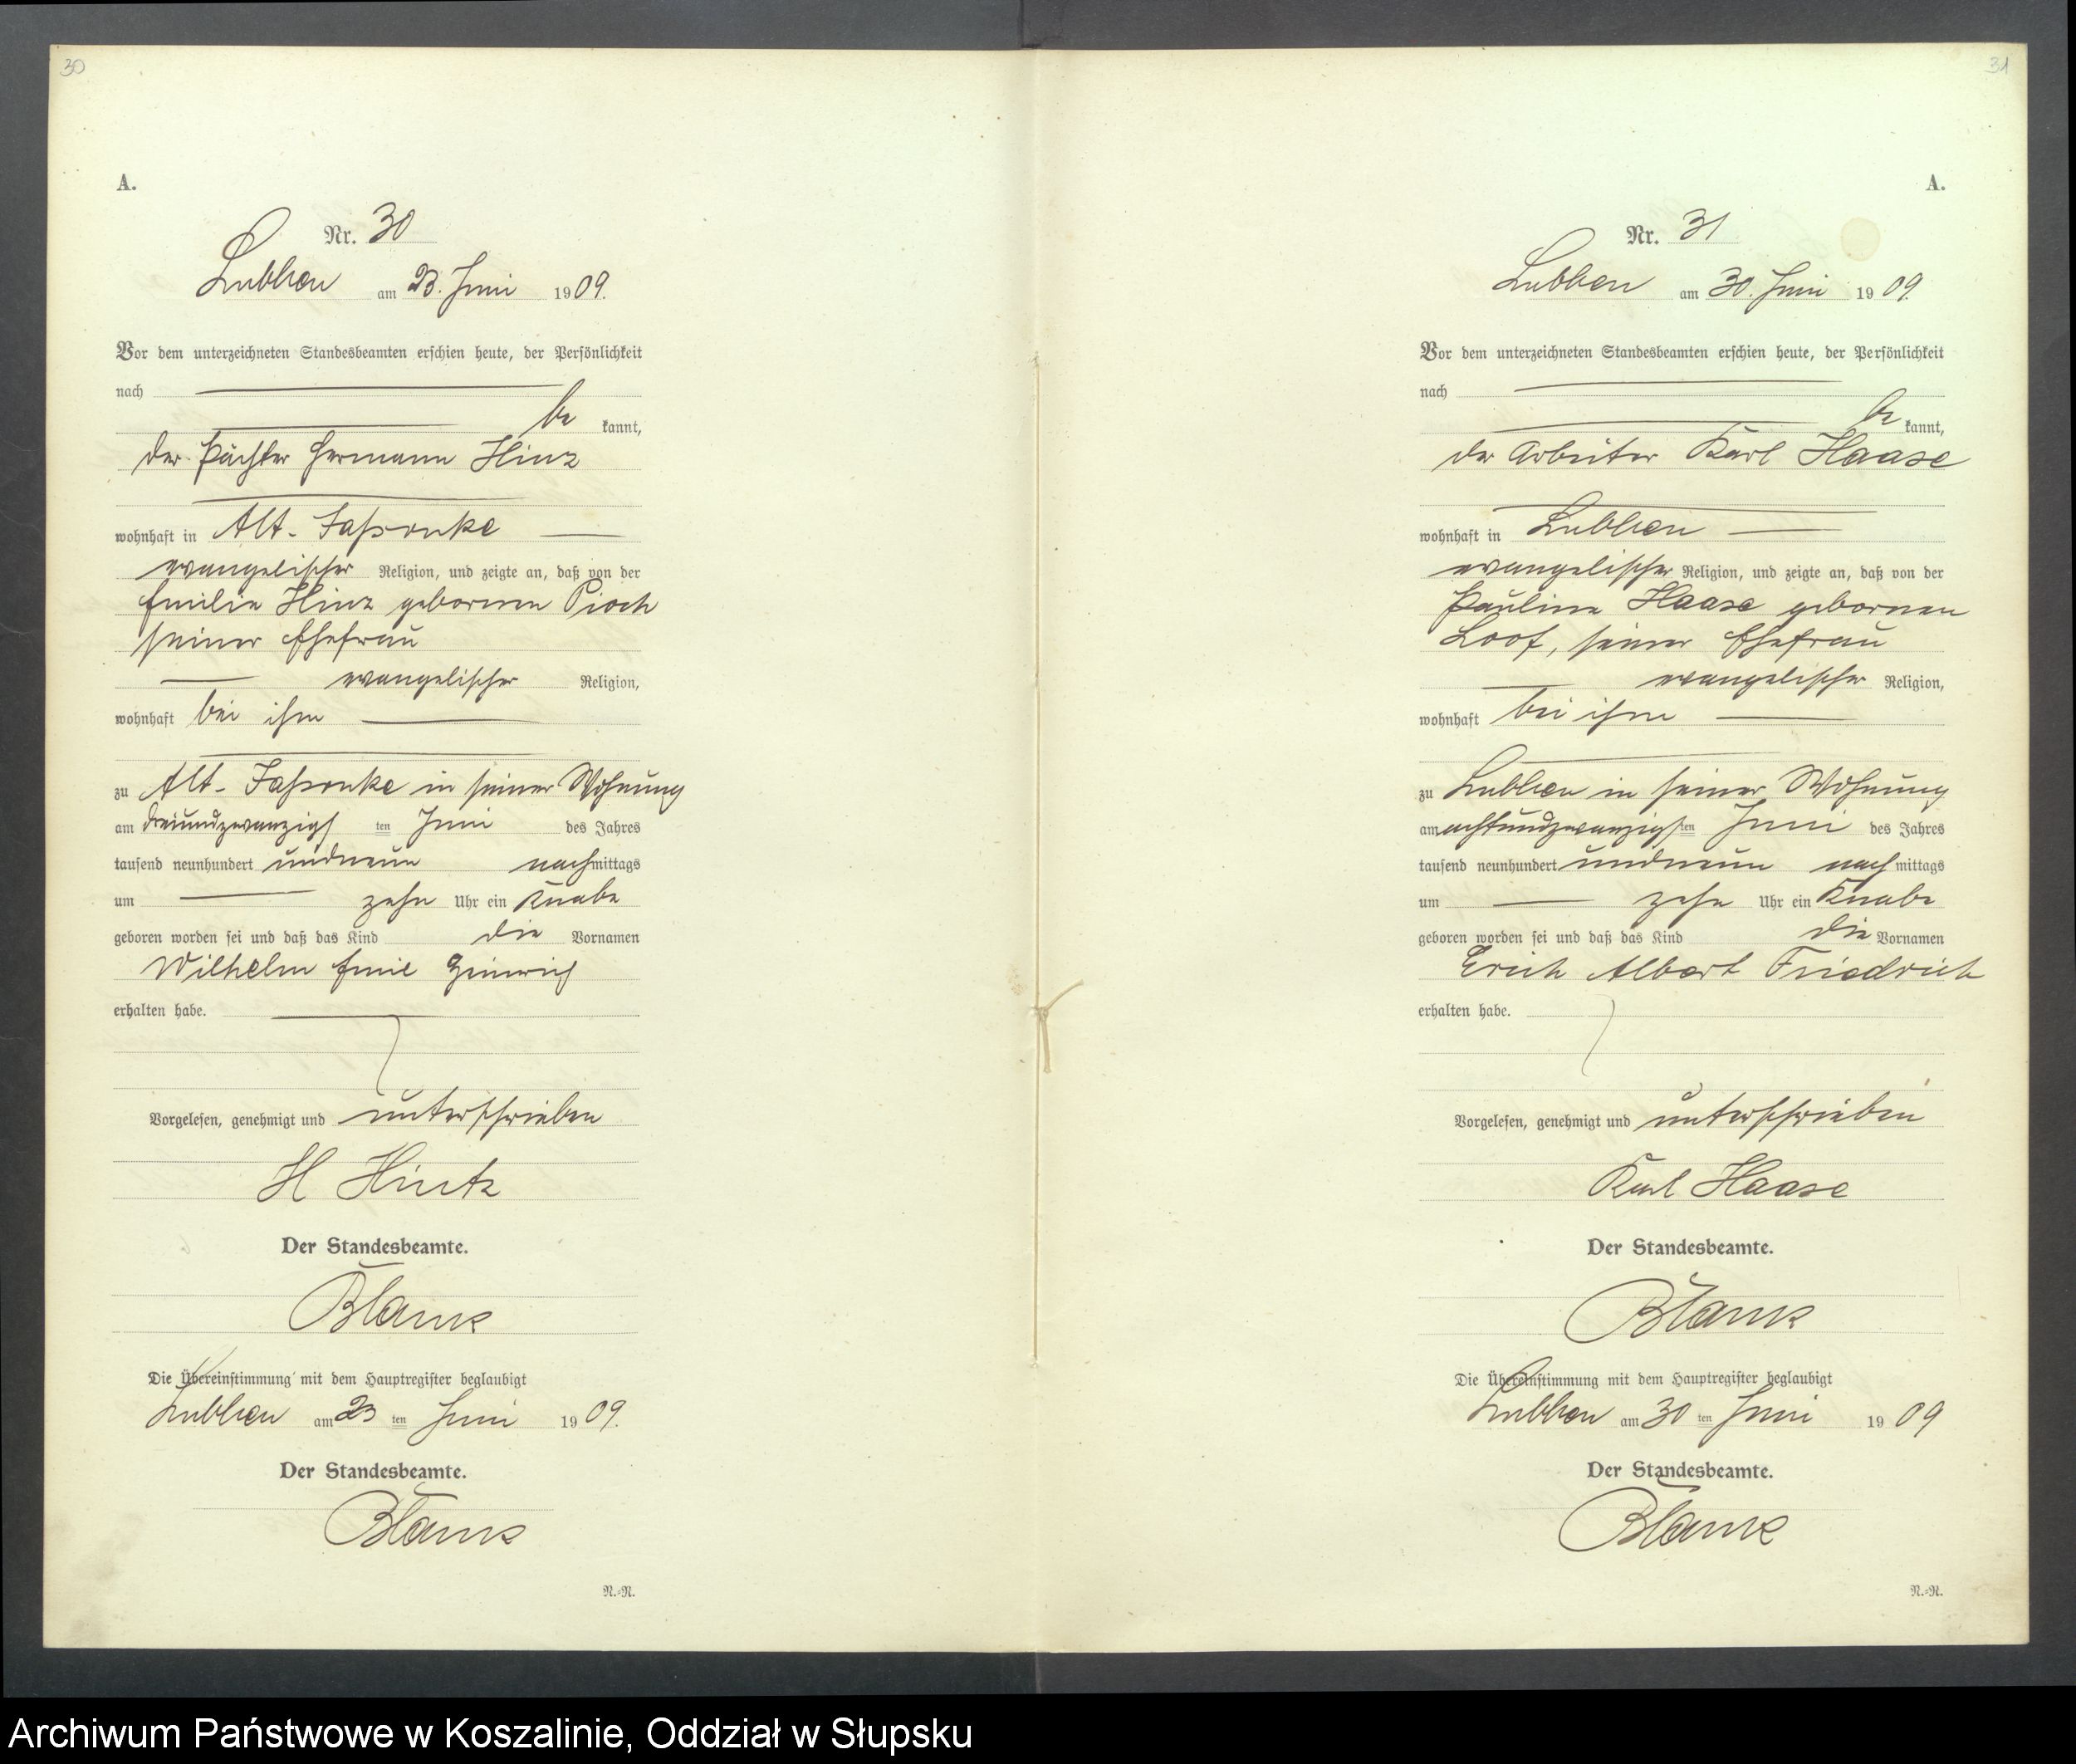 30
A.
Nr. 30
Lubben am 23. Juni 1909.
Vor dem unterzeichneten Standesbeamten erschien heute, der Persönlichkeit
nach
be kannt,
der Pächter Hermann Hinz
wohnhaft in Alt-Jassonke
evangelischer Religion, und zeigte an, daß von der
Emilie Hinz geborenen Pioch
seiner Ehefrau
evangelischer Religion,
wohnhaft bei ihm
zu Alt-Jassonke in seiner Wohnung
am dreiundzwanzigsten Juni des Jahres
tausend neunhundert undneun nachmittags
um zehn Uhr ein Knabe
geboren worden sei und daß das Kind die Vornamen
Wilhelm Emil Heinrich
erhalten habe.
Vorgelesen, genehmigt und unterschrieben
H Hintz
Der Standesbeamte.
Die Übereinstimmung mit dem Hauptregister beglaubigt
Lubben am 23 ten Juni 1909.
Der Standesbeamte.
N.=N.
31
A.
Nr. 31
Lubben am 30. Juni 1909.
Vor dem unterzeichneten Standesbeamten erschien heute, der Persönlichkeit
nach
be kannt,
der Arbeiter Karl Haase
wohnhaft in Lubben
evangelischer Religion, und zeigte an, daß von der
Pauline Haase gebornen
Loof, seiner Ehefrau
evangelischer Religion,
wohnhaft bei ihm
zu Lubben in seiner Wohnung
am achtundzwanzigsten Juni des Jahres
tausend neunhundert undneun nachmittags
um zehn Uhr ein Knabe
geboren worden sei und daß das Kind die Vornamen
Erich Albert Friedrich
erhalten habe.
Vorgelesen, genehmigt und unterschrieben
Karl Haase
Der Standesbeamte.
Die Übereinstimmung mit dem Hauptregister beglaubigt
Lubben am 30 ten Juni 1909
Der Standesbeamte.
N.=N.
Archiwum Państwowe w Koszalinie, Oddział w Słupsku